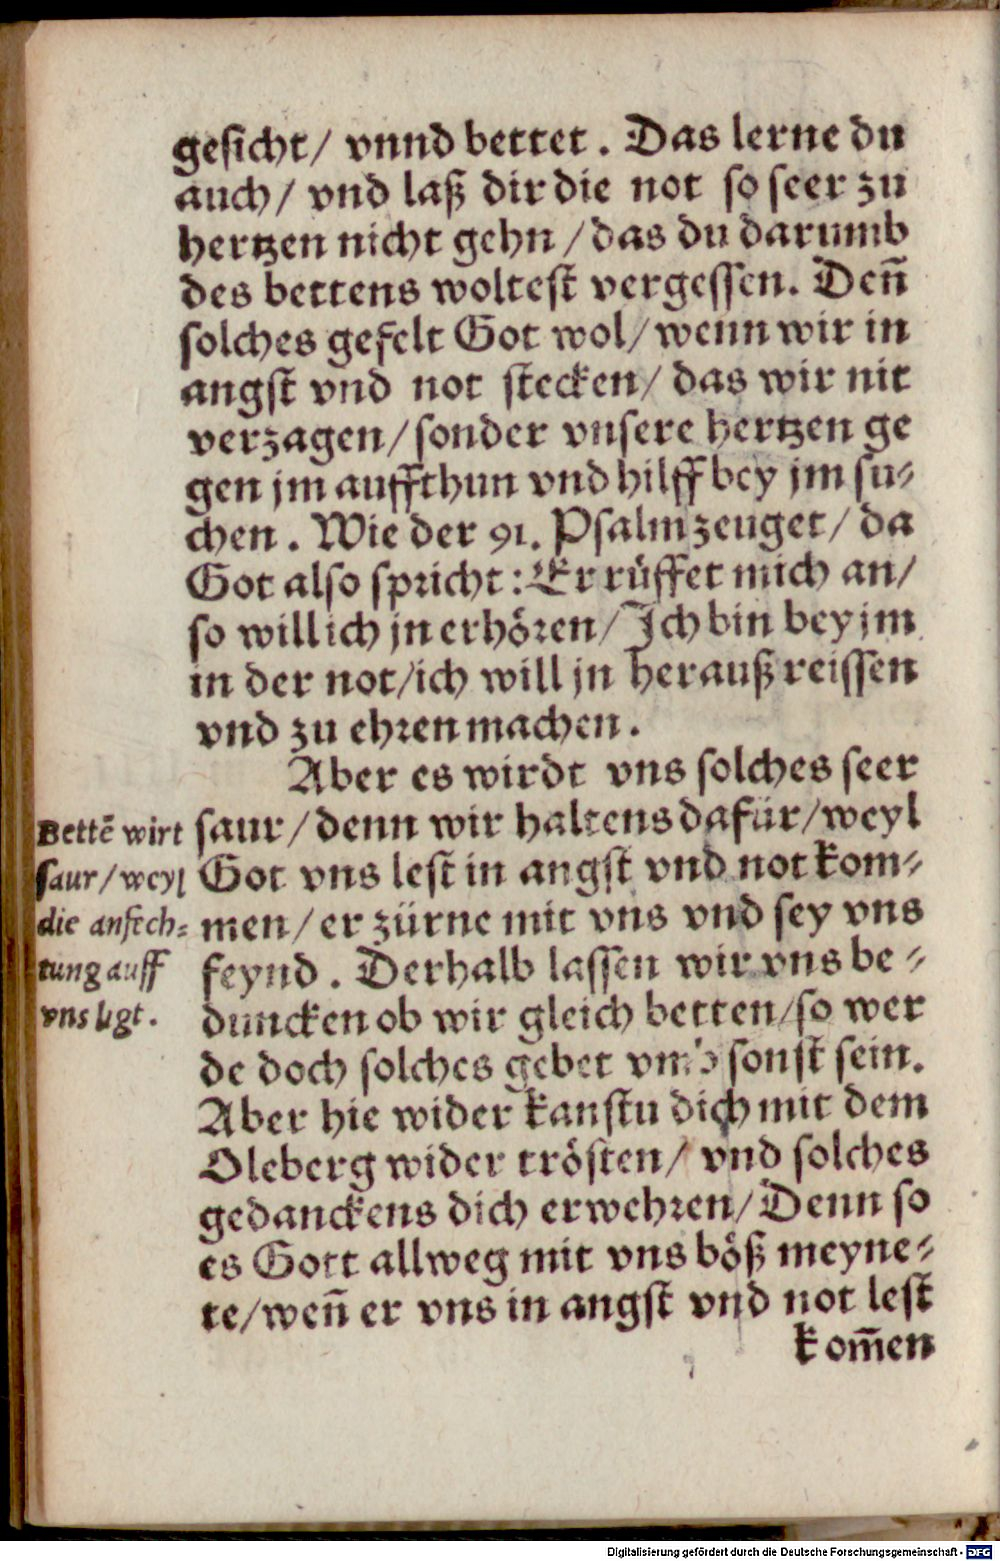 gesicht/ vnnd bettet. Das lerne du
auch/ vnd laß dir die not so seer zu
hertzen nicht gehn/das du darumb
des bettens woltest vergessen. Deñ
solches gefelt Got wol/wenn wir in
angst vnd not stecken/das wir nit
verzagen/sonder vnsere hertzen ge
gen jm auffthun vnd hilff bey jm su⸗
chen. Wie der 91. Psalm zeuget/ da
Got also spricht: Er rüffet mich an/
so will ich jn erhören/Ich bin bey jm
in der not/ich will jn herauß reissen
vnd zu ehren machen.
Aber es wirdt vns solches seer
saur/denn wir haltens dafür/weyl
Got vns lest in angst vnd not kom⸗
men/er zürne mit vns vnd sey vns
feynd. Derhalb lassen wir vns be⸗
duncken ob wir gleich betten/so wer
de doch solches gebet vmb sonst sein.
Aber hie wider kanstu dich mit dem
Oleberg wider trösten/ vnd solches
gedanckens dich erwehren/Denn so
es Gott allweg mit vns böß meyne⸗
te/weñ er vns in angst vnd not lest
kom̃en
Bettẽ wirt
saur/weyl
die anfech⸗
tung auff
vns ligt.
Digitalisierung gefördert durch die Deutsche Forschungsgemeinschaft - DFG